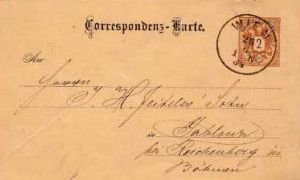 Correspondenz-Karte.
WIEN
2
An
Herrn
J. H. Jeiteles' Sohn
in Gablonz
bei Reichenberg in
Böhmen